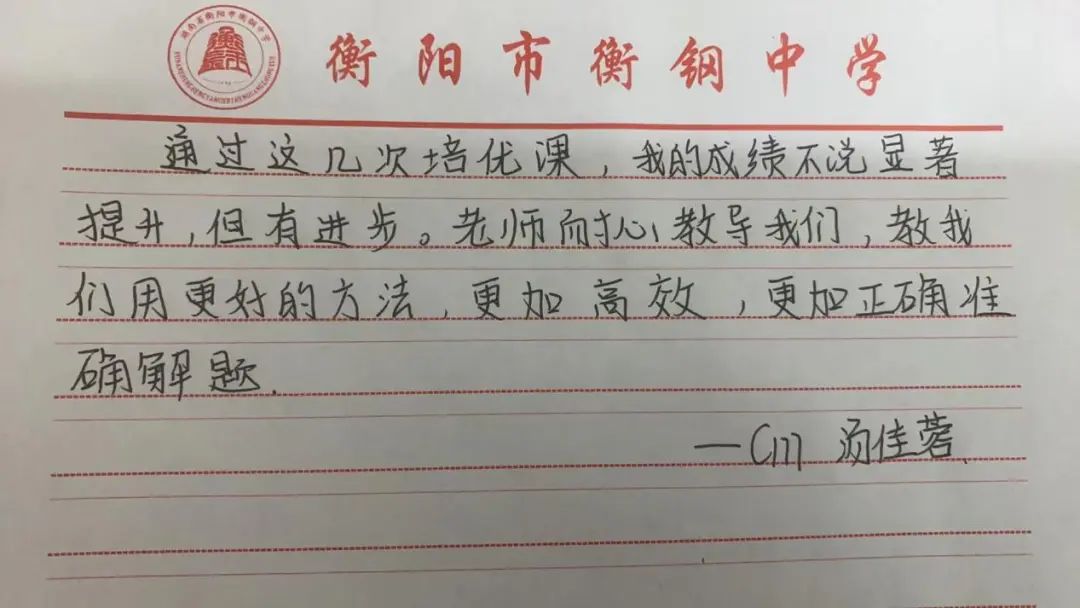 衡阳市衡钢中学
通过这几次培优课，我的成绩不说显著
提升，但有进步。老师耐心教导我们，教我
们用更好的方法，更加高效，更加正确准
确解题.
—C111 汤佳蓉.